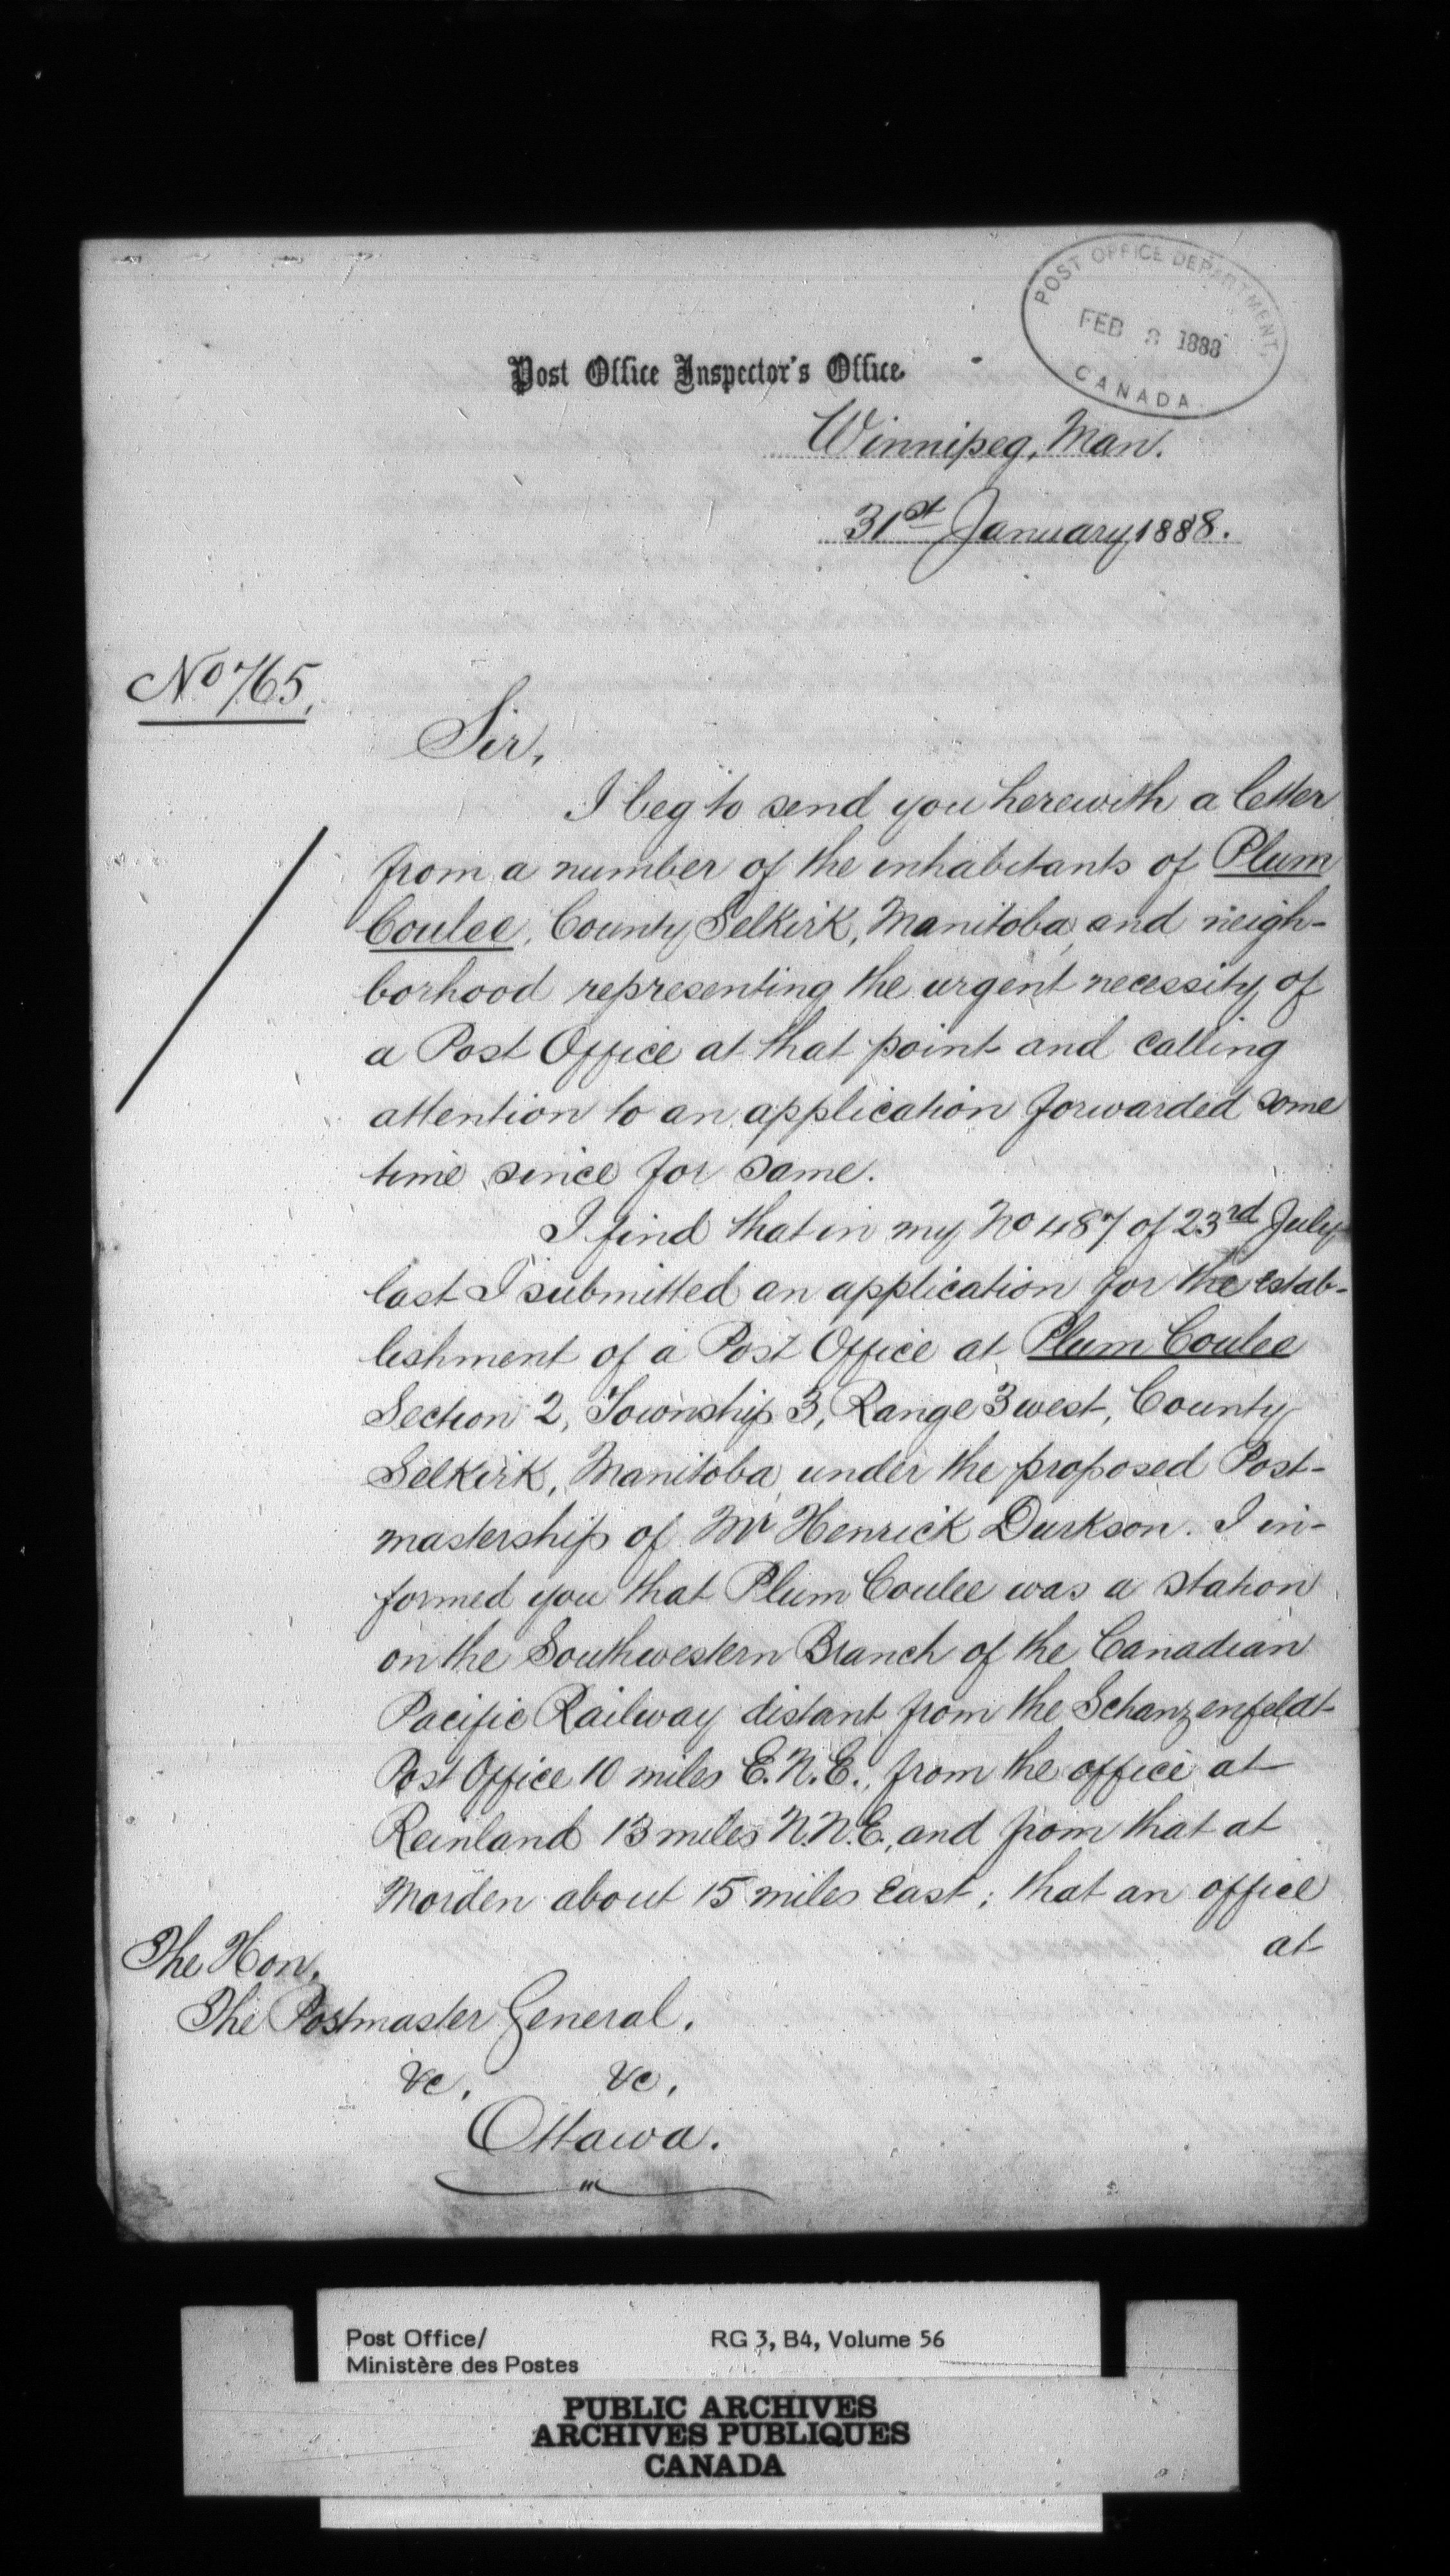 POST OFFICE DEPARTMENT,
FEB 3 1888
CANADA
Post Office Inspector's Office
Winnipeg, Man.
31st January 1888.
No 765.
Sir,
I beg to send you herewith a letter
from a number of the inhabitants of Plum
Coulee, County Selkirk, Manitoba, and neigh-
borhood representing the urgent necessity of
a Post Office at that point and calling
attention to an application forwarded some
time since for same.
I find that in my No 487 of 23rd July
last I submitted an application for the estab-
lishment of a Post Office at Plum Coulee
Section 2, Township 3, Range 3 west, County
Selkirk, Manitoba, under the proposed Post-
mastership of Mr Henrick Durkson. I in-
formed you that Plum Coulee was a station
on the Southwestern Branch of the Canadian
Pacific Railway distant from the Schanzenfeldt
Post Office 10 miles E.N.E., from the office at
Reinland 13 miles N.N.E., and from that at
Morden about 15 miles East; that an office
at
The Hon.
The Postmaster General.
&c, &c,
Ottawa.
Post Office/ RG 3, B4, Volume 56
Ministère des Postes
PUBLIC ARCHIVES
ARCHIVES PUBLIQUES
CANADA